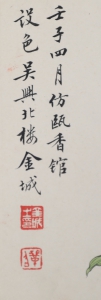 壬子四月仿甌香館
設色吳興北樓金城